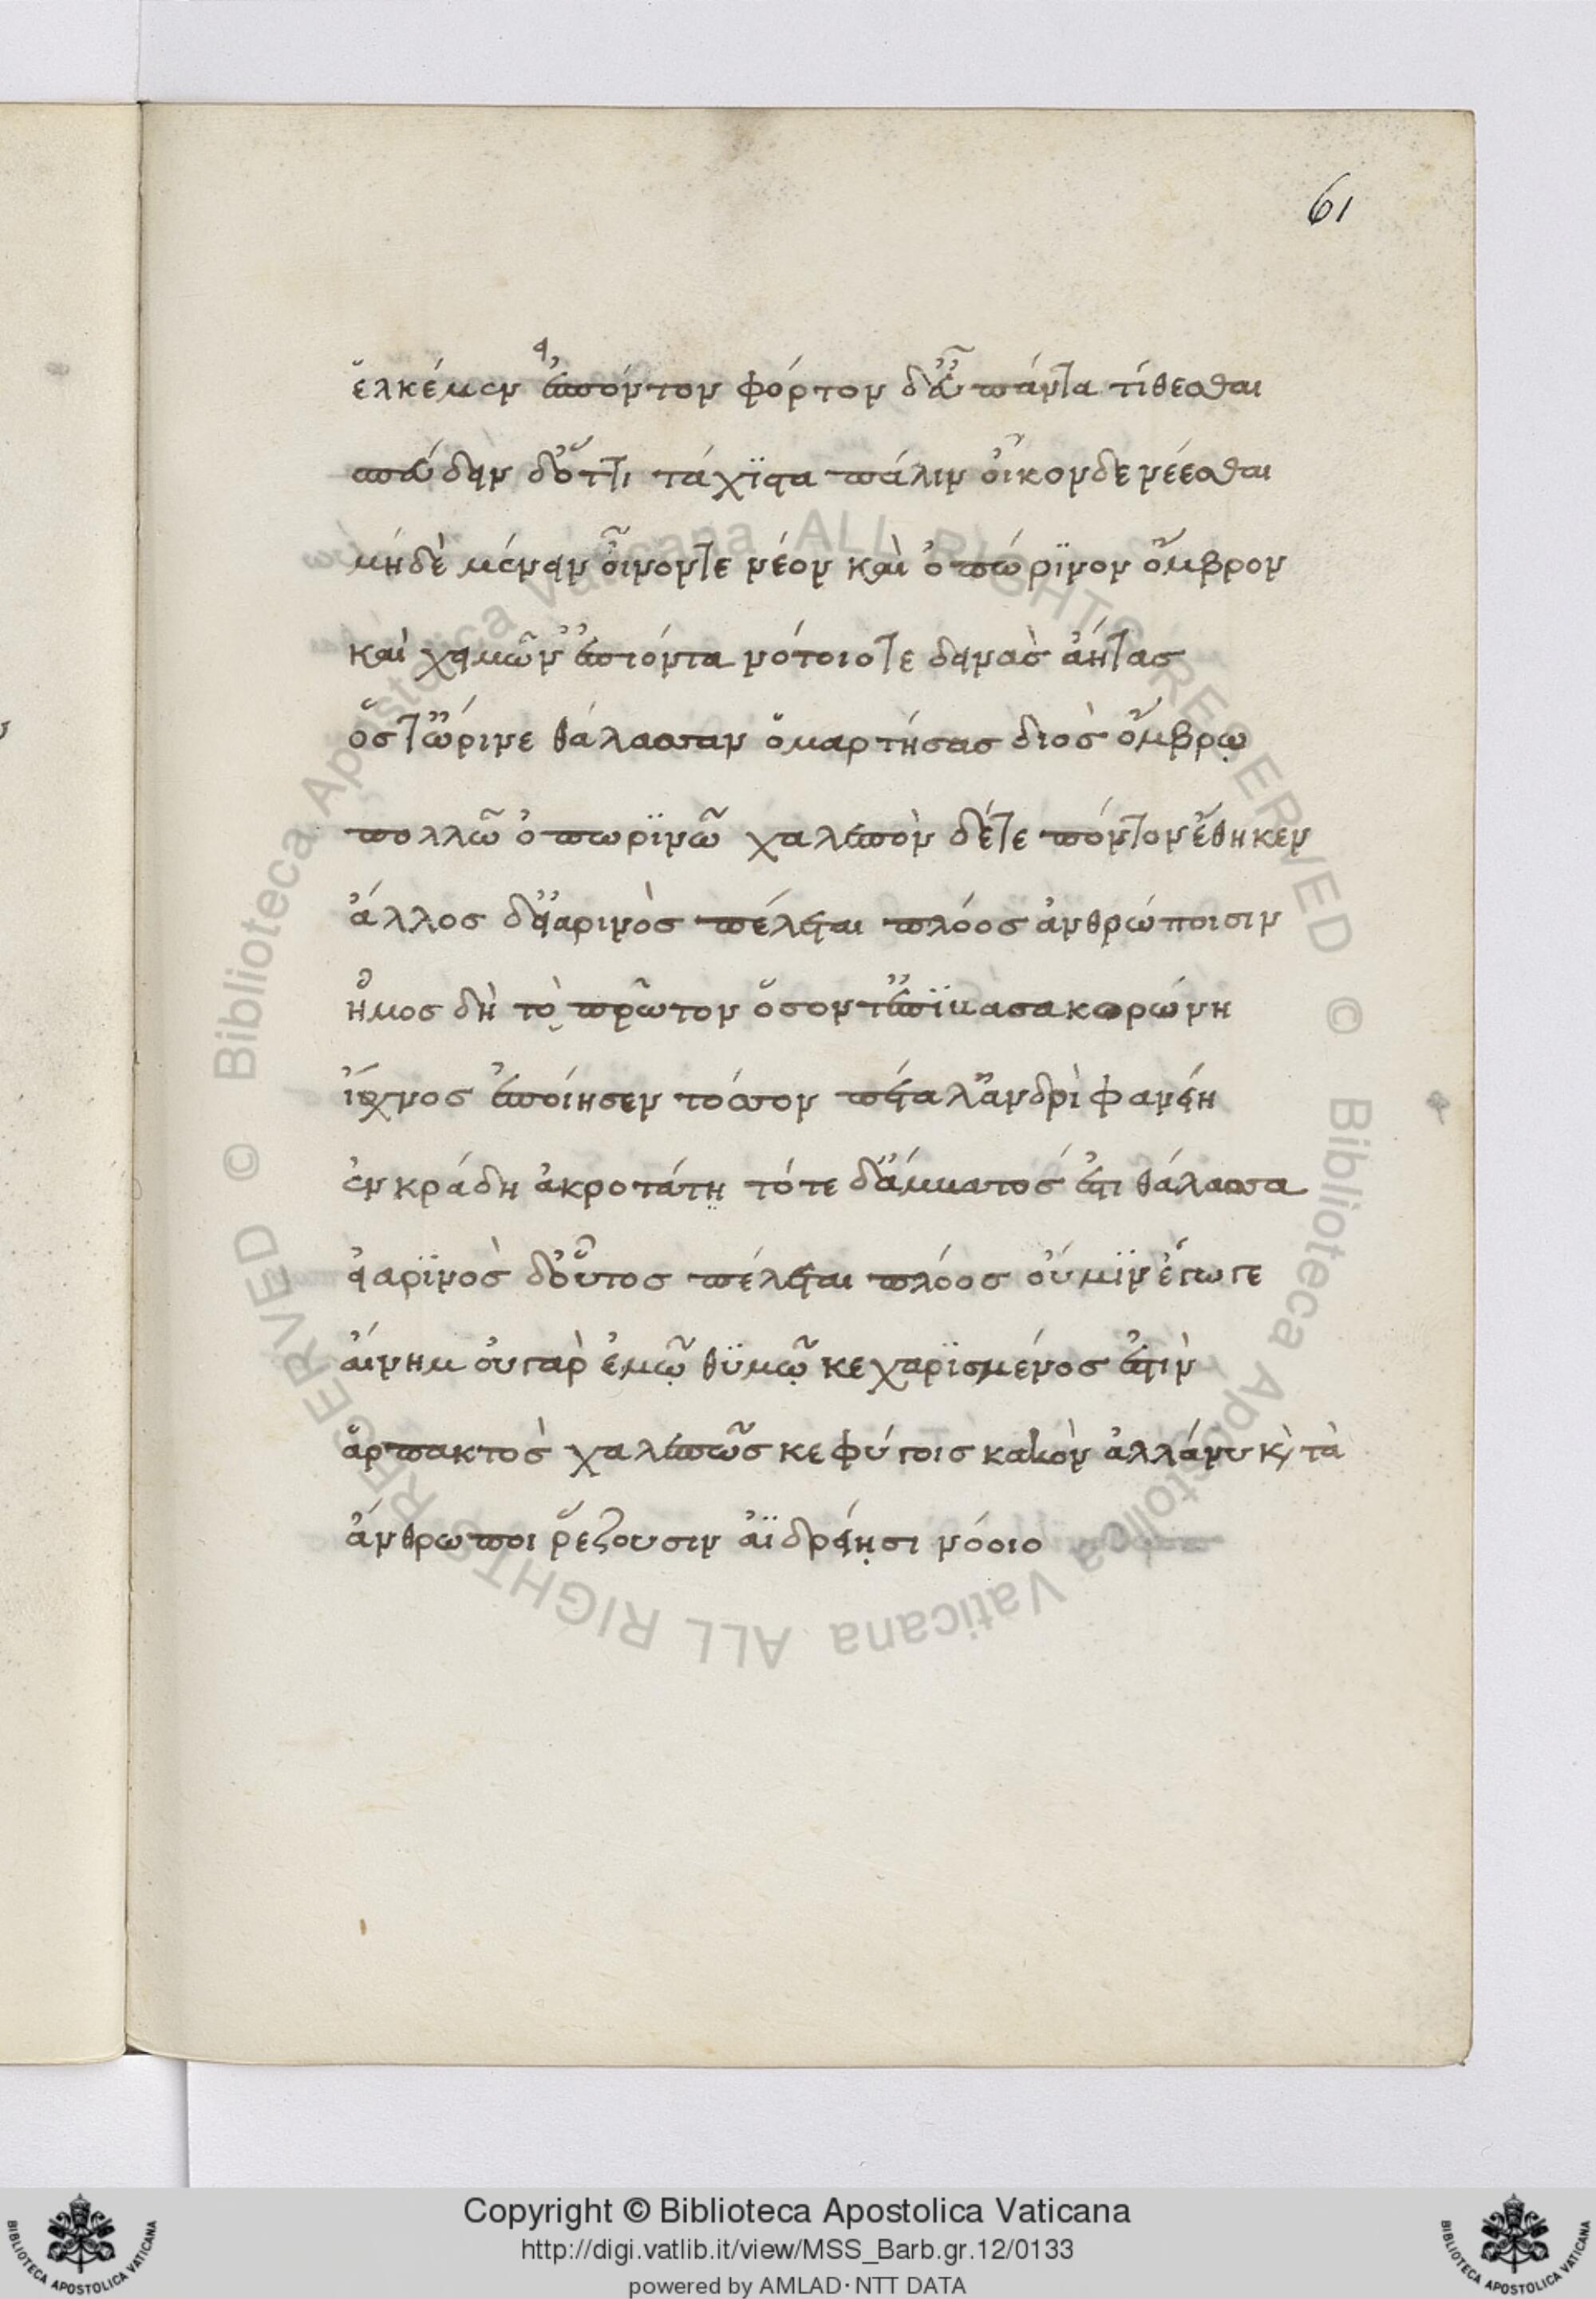 61
ἑλκέμεν ἐσπόντον φόρτον δ' εὖ πάντα τίθεσθαι
σπεύδειν δ' ὅττι τάχϊστα πάλιν οἶκονδε νέεσθαι
μήδὲ μένειν οἶνόντε νέον καὶ ὀπώρϊνον ὄμβρον
καὶ χειμῶν' ἐπιόντα νότοιοτε δεινὰς ἀήτας
ὅστ' ὤρινε θάλασσαν ὁμαρτήσας διὸς ὄμβρῳ
πολλῶ ὀπωρϊνῶ χαλεπὸν δέτε πόντον ἔθηκεν
ἄλλος δ' εἰαρινὸς πέλεται πλόος ἀνθρώποισιν
ἦμος δὴ τὸ πρῶτον ὅσον τ' ἐπϊβᾶσα κορώνη
ἴχνος ἐποίησεν τόσσον πέταλ' ἀνδρὶ φανείη
ἐν κράδη ἀκροτάτῃ τότε δ' ἄμβατός ἐστι θάλασσα
εἰαρϊνὸς δ' οὗτος πέλεται πλόος οὔ μϊν ἔγωγε
αἴνημ' οὐ γὰρ ἐμῷ θϋμῷ κεχαρϊσμένος ἐστὶν
ἁρπακτὸς χαλεπῶς κε φύγοις κακὸν ἀλλά νυ κὶ τὰ
ἄνθρωποι ῥέζουσιν ἀϊδρείῃσι νόοιο
Biblioteca Apostolica Vaticana ALL RIGHTS RESERVED © Biblioteca Apostolica Vaticana ALL RIGHTS RESERVED ©
Copyright © Biblioteca Apostolica Vaticana
http://digi.vatlib.it/view/MSS_Barb.gr.12/0133
powered by AMLAD·NTT DATA
BIBLIOTECA APOSTOLICA VATICANA
BIBLIOTECA APOSTOLICA VATICANA